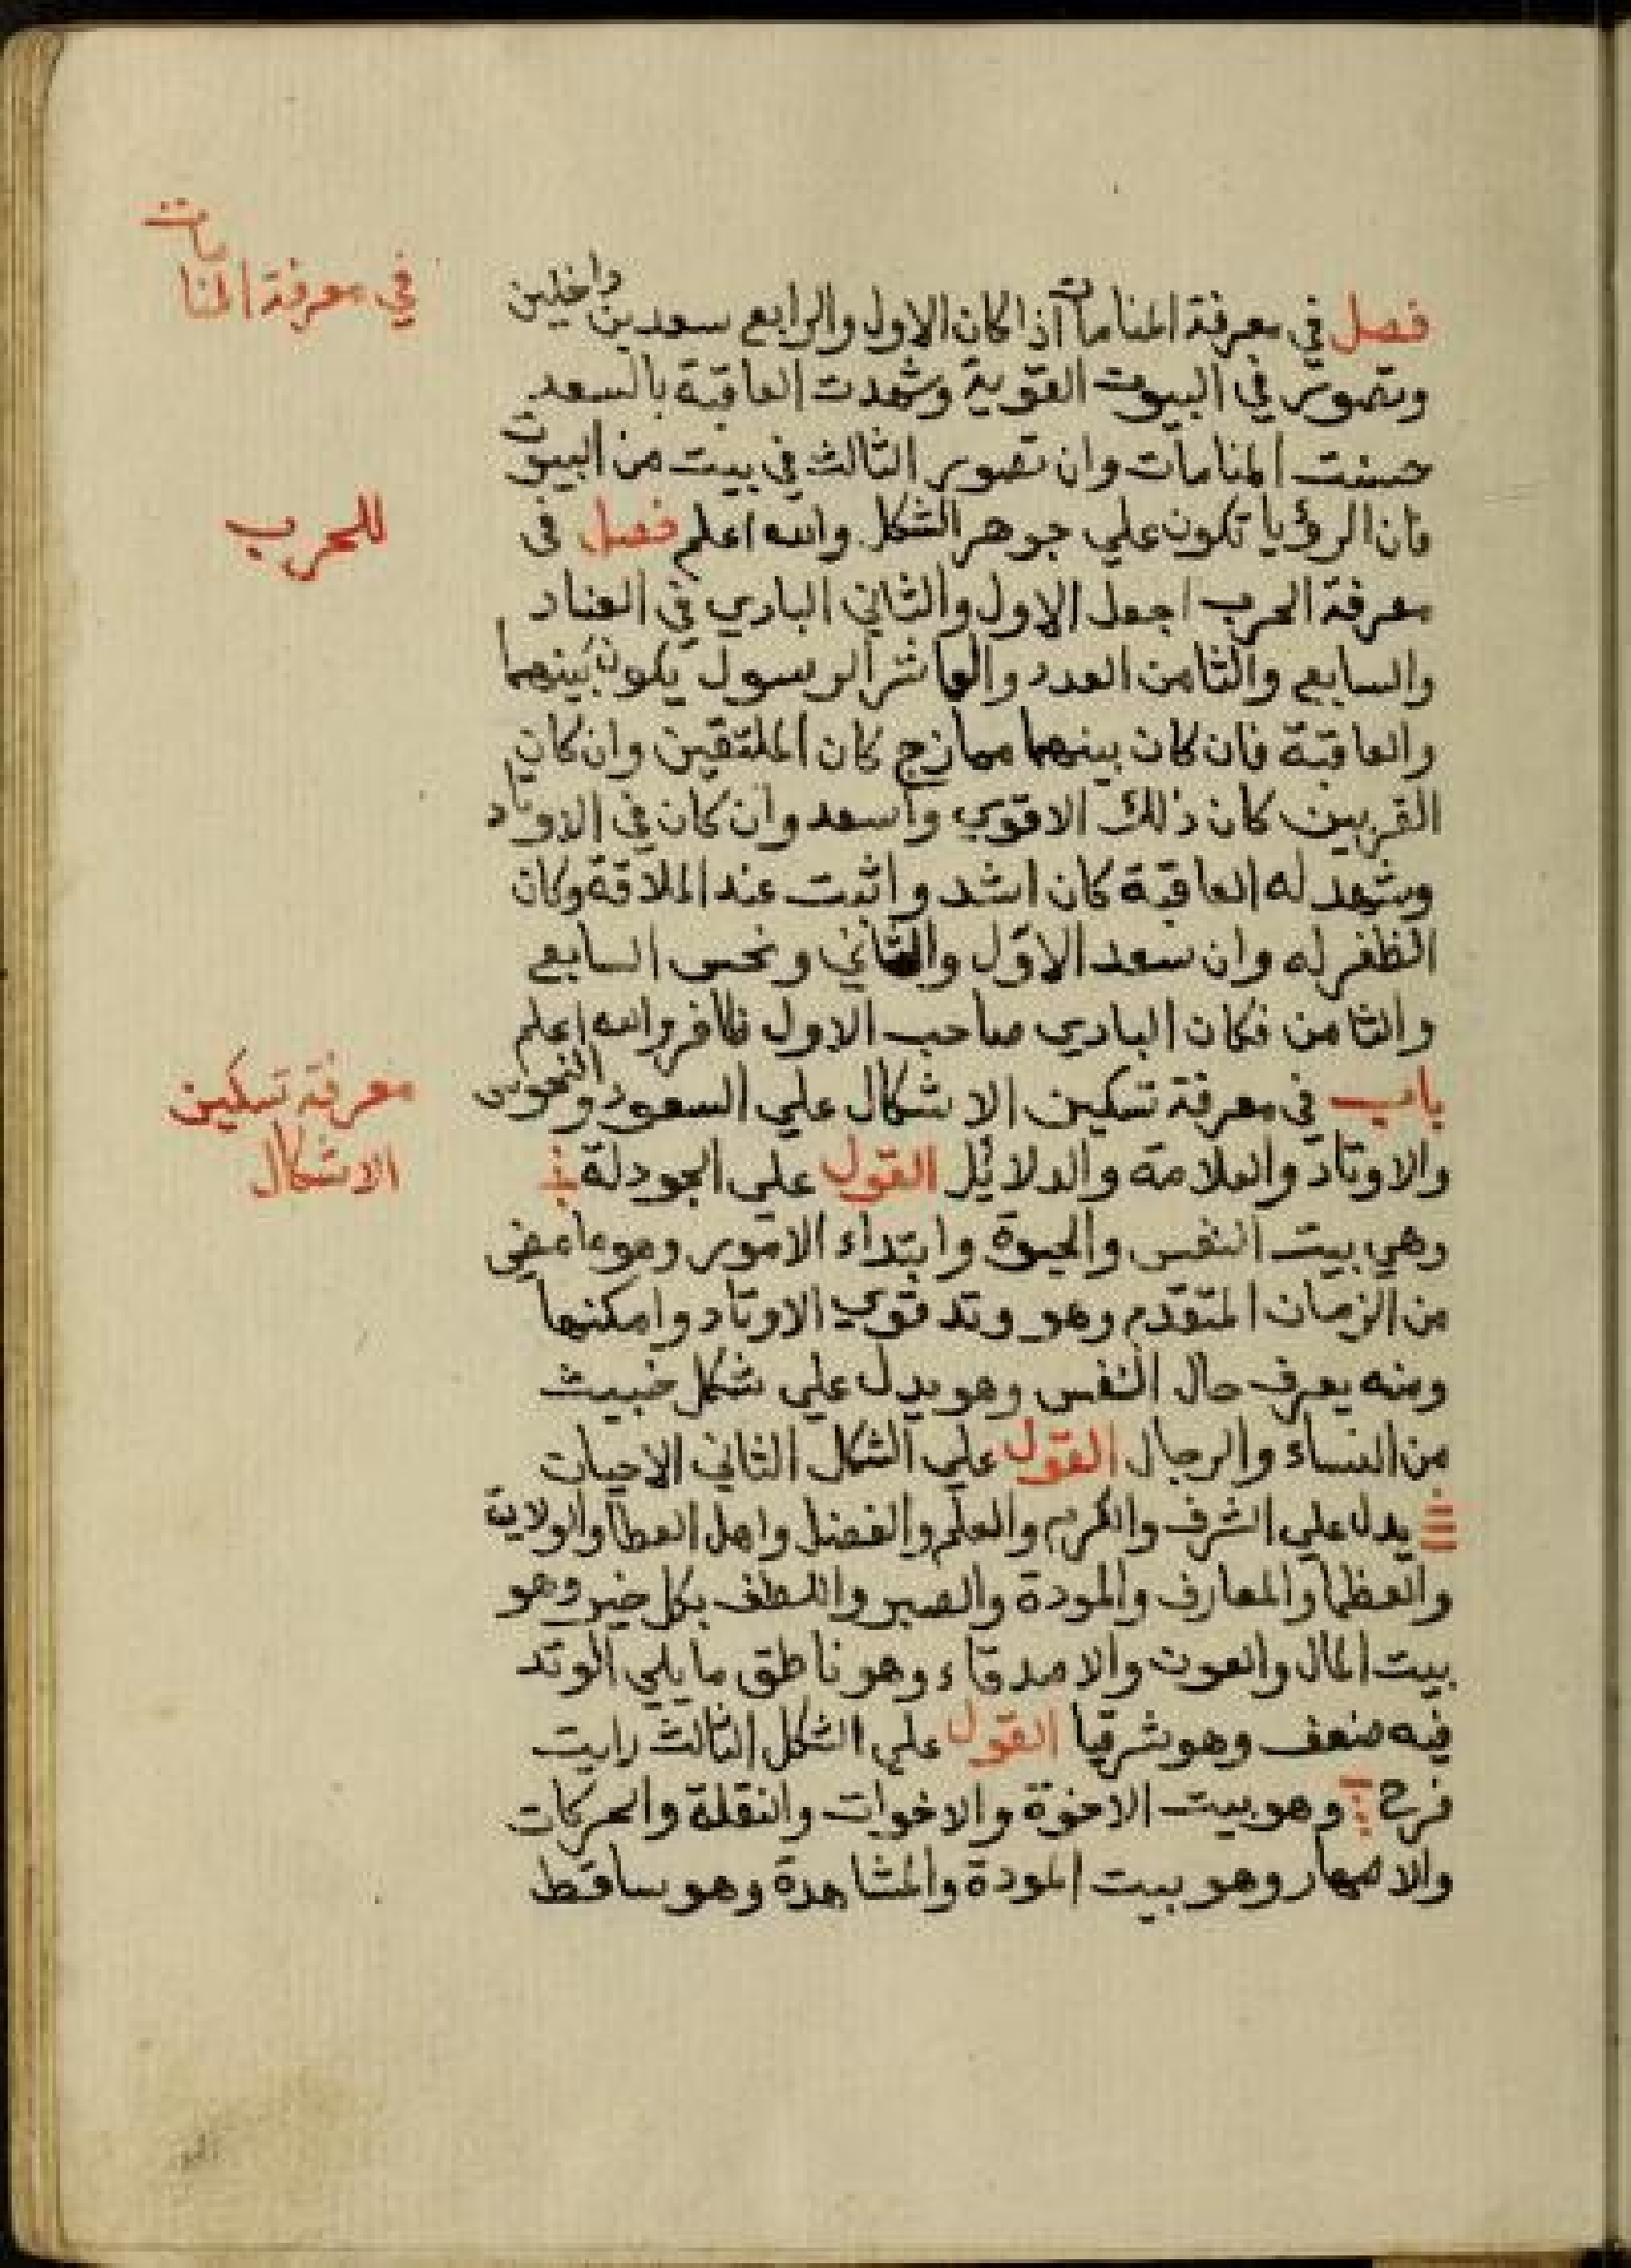 في معرفة المنامات
فصل في معرفة المنامات اذا كان الاول والرابع سعدين داخلين
وتصور في البيوت القوية وشهدت العاقبة بالسعد
حسنت المنامات وان تصور الثالث في بيت من البيوت
فان الرؤيا تكون علي جوهر الشكل والله اعلم فصل فى
للحرب
معرفة الحرب اجعل الاول والثاني البادي في العناد
والسابع والثامن العدد والعاشر الرسول يكون بينهما
والعاقبة فان كان بينهما ممازج كان الملتقين وان كان
القربين كان ذلك الاقوي واسعد وان كان في الاوتاد
وشهد له العاقبة كان اشد واثبت عند الملاقة وكان
الظفر له وان سعد الاول والثاني ونحس السابع
والثامن فكان البادي صاحب الاول ظافر والله اعلم
معرفة تسكين
الاشكال
باب في معرفة تسكين الاشكال علي السعود والنحوس
والاوتاد والعلامة والدلائل القول علي الجودلة
وهي بيت النفس والحيوة وابتداء الامور وهو ما مضى
من الزمان المتقدم وهو وتد قوي الاوتاد وامكنها
ومنه يعرف حال النفس وهو يدل علي شكل خبيث
من النساء والرجال القول علي الشكل الثاني الاحيات
يدل علي الشرف والكرم والعلم والفضل واهل العطا والولاية
والعظما والمعارف والمودة والصبر واللطف بكل خير وهو
بيت المال والعون والاصدقاء وهو ناطق ما يلي الوتد
فيه ضعف وهو شرقيا القول علي الشكل الثالث رايت
فرح وهو بيت الاخوة والاخوات والنقلة والحركات
والاصهار وهو بيت المودة والمشاهدة وهو ساقط